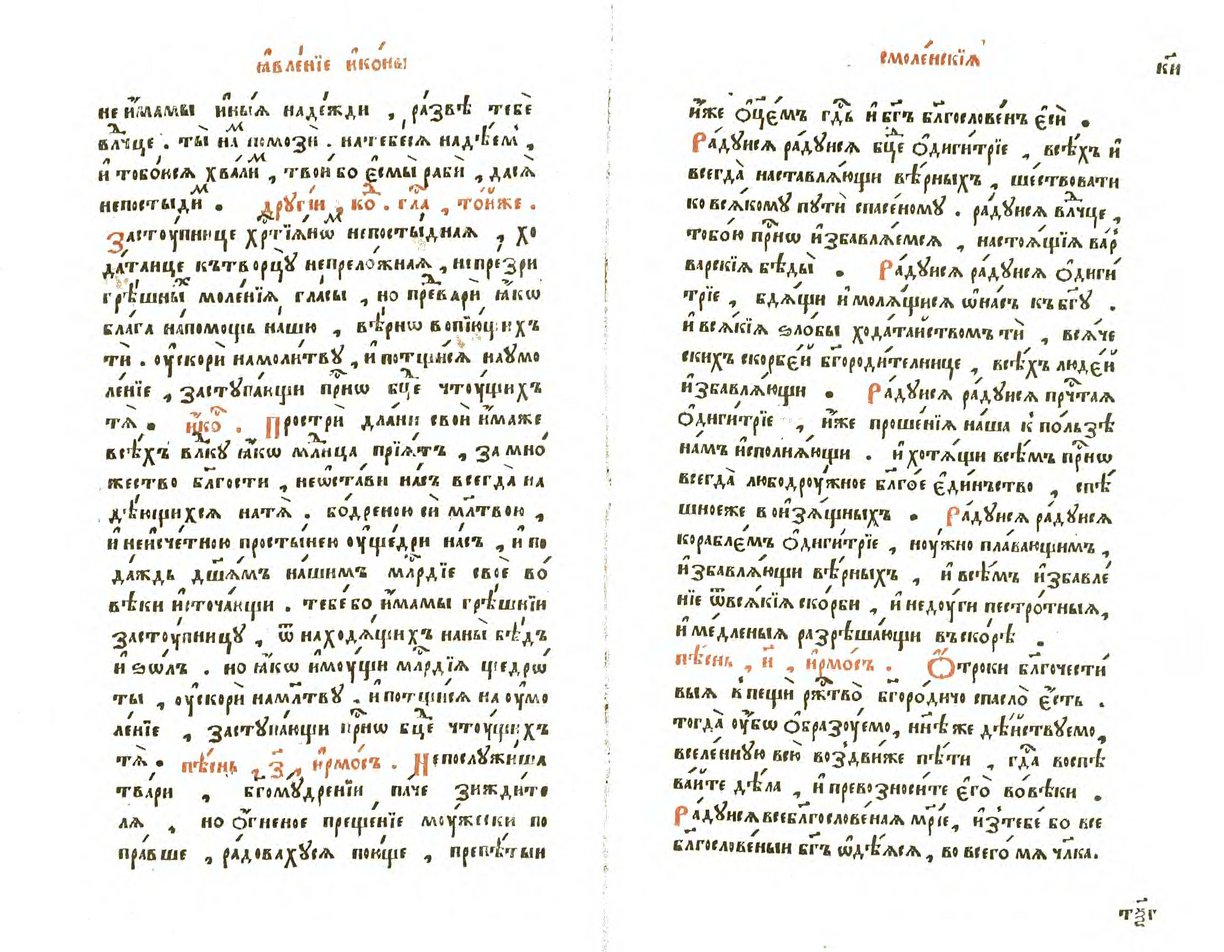 ꙗ҆вле́нїе и҆ко́ны
не и҆́мамы и҆ны́ѧ наде́жди , ра́звѣ тебѐ
влⷣчце . ты̀ наⷨ помозѝ . на тебе́сѧ надѣ́емⸯ ,
и҆ тобо́юсѧ хва́лиⷨ , твои̑ бо є҆смы̀ рабѝ , да сѧ
не посты́диⷨ . дрꙋгі́и , коⷣ . глаⷭ , то́йже .
Засто́упнице хрⷭ҇тїѧ́нѡⷨ непосты́днаѧ , хо
да́танце къ творцꙋ̀ непрело́жнаѧ , не пре́зри
грѣ́шныⷯ моле́нїѧ гла́сы , но преⷣварѝ ꙗ҆́кѡ
блага̀ на по́мощь на́шю , вѣ́рнѡ вопїю́щихъ
тѝ . оу҆скорѝ на моли́твꙋ , и҆ потщи́сѧ на оумо
ле́нїе , застꙋпа́ющи при́снѡ бцⷣе чтоу́щихъ
тѧ̀ . и҆́коⷭ . Прострѝ дла́ни своѝ и҆́маже
всѣ́хъ влⷣкꙋ ꙗ҆́кѡ млⷣнца прїѧ́тъ , за мно́
жество бл҃гости , не ѡ҆ста́ви на́съ всегда̀ на
дѣ́ющихсѧ на тѧ̀ . бо́дреною сѝ мл҃твою ,
и҆ неисче́тною просты́нею оу҆ще́дри на́съ , и҆ по
да́ждь дш҃а́мъ на́шимъ млⷭ҇рдїе своѐ во́
вѣки и҆сточа́ющи . тебе́ бо и҆́мамы грѣ́шнїи
засто́упницꙋ , ѿ находѧ́щихъ на ны̀ бѣ́дъ
и҆ ѕѡ́лъ . но ꙗ҆́кѡ и҆моу́щи млⷭ҇рдїѧ щедрѡ́
ты , оу҆скорѝ на мл҃твꙋ . и҆ потщи́сѧ на оу҆мо
ле́нїе , застꙋпа́ющи при́снѡ бцⷣе чтоу́щихъ
тѧ̀ . пѣ́снь , з҃ , і҆рмо́съ . Не послꙋжи́ша
тва́ри , бг҃омꙋ́дренїи па́че зижди́те
лѧ , но ѻ҆́гненое преще́нїе моу́жески по
пра́вше , ра́довахꙋсѧ пою́ще , препѣ́тыи
смоле́нскїѧ
к҃и
и҆́же ѻ҆ц҃е́мъ гдⷭ҇ь и҆ бг҃ъ бл҃гослове́нъ є҆сѝ .
Ра́дꙋисѧ ра́дꙋисѧ бцⷣе ѻ҆диги́трїе , всѣ́хъ и҆
всегда̀ наставлѧ́ющи вѣ́рныхъ , ше́ствовати
ко всѧ́комꙋ пꙋтѝ спасе́номꙋ . ра́дꙋисѧ влⷣчце ,
тобо́ю при́снѡ и҆збавлѧ́емсѧ , настоѧ́щїѧ вар
ва́рскїѧ бѣды̀ . Ра́дꙋисѧ ра́дꙋисѧ ѻ҆диги́
трїе , бдѧ́щи и҆ молѧ́щисѧ ѡ҆ на́съ къ бг҃ꙋ .
и҆ всѧ́кїѧ ѕло́бы хода́таиствомъ тѝ , всѧ́че
скихъ скорбе́й бг҃ороди́телнице , всѣ́хъ люде́й
и҆збавлѧ́ющи . Ра́дꙋисѧ ра́дꙋисѧ прⷱ҇таѧ
ѻ҆диги́трїе , и҆́же проше́нїѧ на́ша к̾ по́льзѣ
на́мъ и҆сполнѧ́ющи . и҆ хотѧ́щи всѣ́мъ при́снѡ
всегда̀ любодроу́жное бл҃го́е є҆ди́нъство , спѣ́
шное же во и҆зѧ́щныхъ . Ра́дꙋисѧ ра́дꙋисѧ
корабле́мъ ѻ҆диги́трїе , ноу́жно пла́вающимъ ,
и҆збавлѧ́ющи вѣ́рныхъ , и҆ всѣ́мъ и҆збавле́
нїе ѿ всѧ́кїѧ ско́рби , и҆ недоу́ги пестро́тныѧ ,
и҆ ме́дленыѧ разрѣша́ющи въ ско́рѣ .
пѣ́снь , и҃ , і҆рмо́съ . Ѻ҆́троки бл҃гочести́
выѧ в̾ пещѝ ржⷭ҇тво̀ бг҃оро́дичо спасло̀ є҆́сть .
тогда̀ оу҆́бѡ ѻ҆бразоу́емо , нн҃ѣ же дѣ́йствꙋемо ,
вселе́ннꙋю всю̀ воздви́же пѣ́ти , гдⷭ҇а воспѣ
ва́йте дѣла̀ , и҆ превозноси́те є҆го̀ во́вѣки .
Ра́дꙋисѧ всебл҃гослове́наѧ мр҃і́е , и҆з̾ тебе́ бо все
бл҃гослове́ныи бг҃ъ ѡ҆дѣ́ѧсѧ , во всего́ мѧ чл҃ка .
тѯг